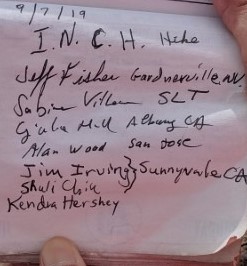 9/7/19
I.N.C.H. Hike
Jeff Fisher Gardnerville, NV.
Sabine SLT
Hill Albany CA
Alan Wood San Jose
Jim Irving } Sunnyvale CA
Shuli Chiu
Kendra Hershey